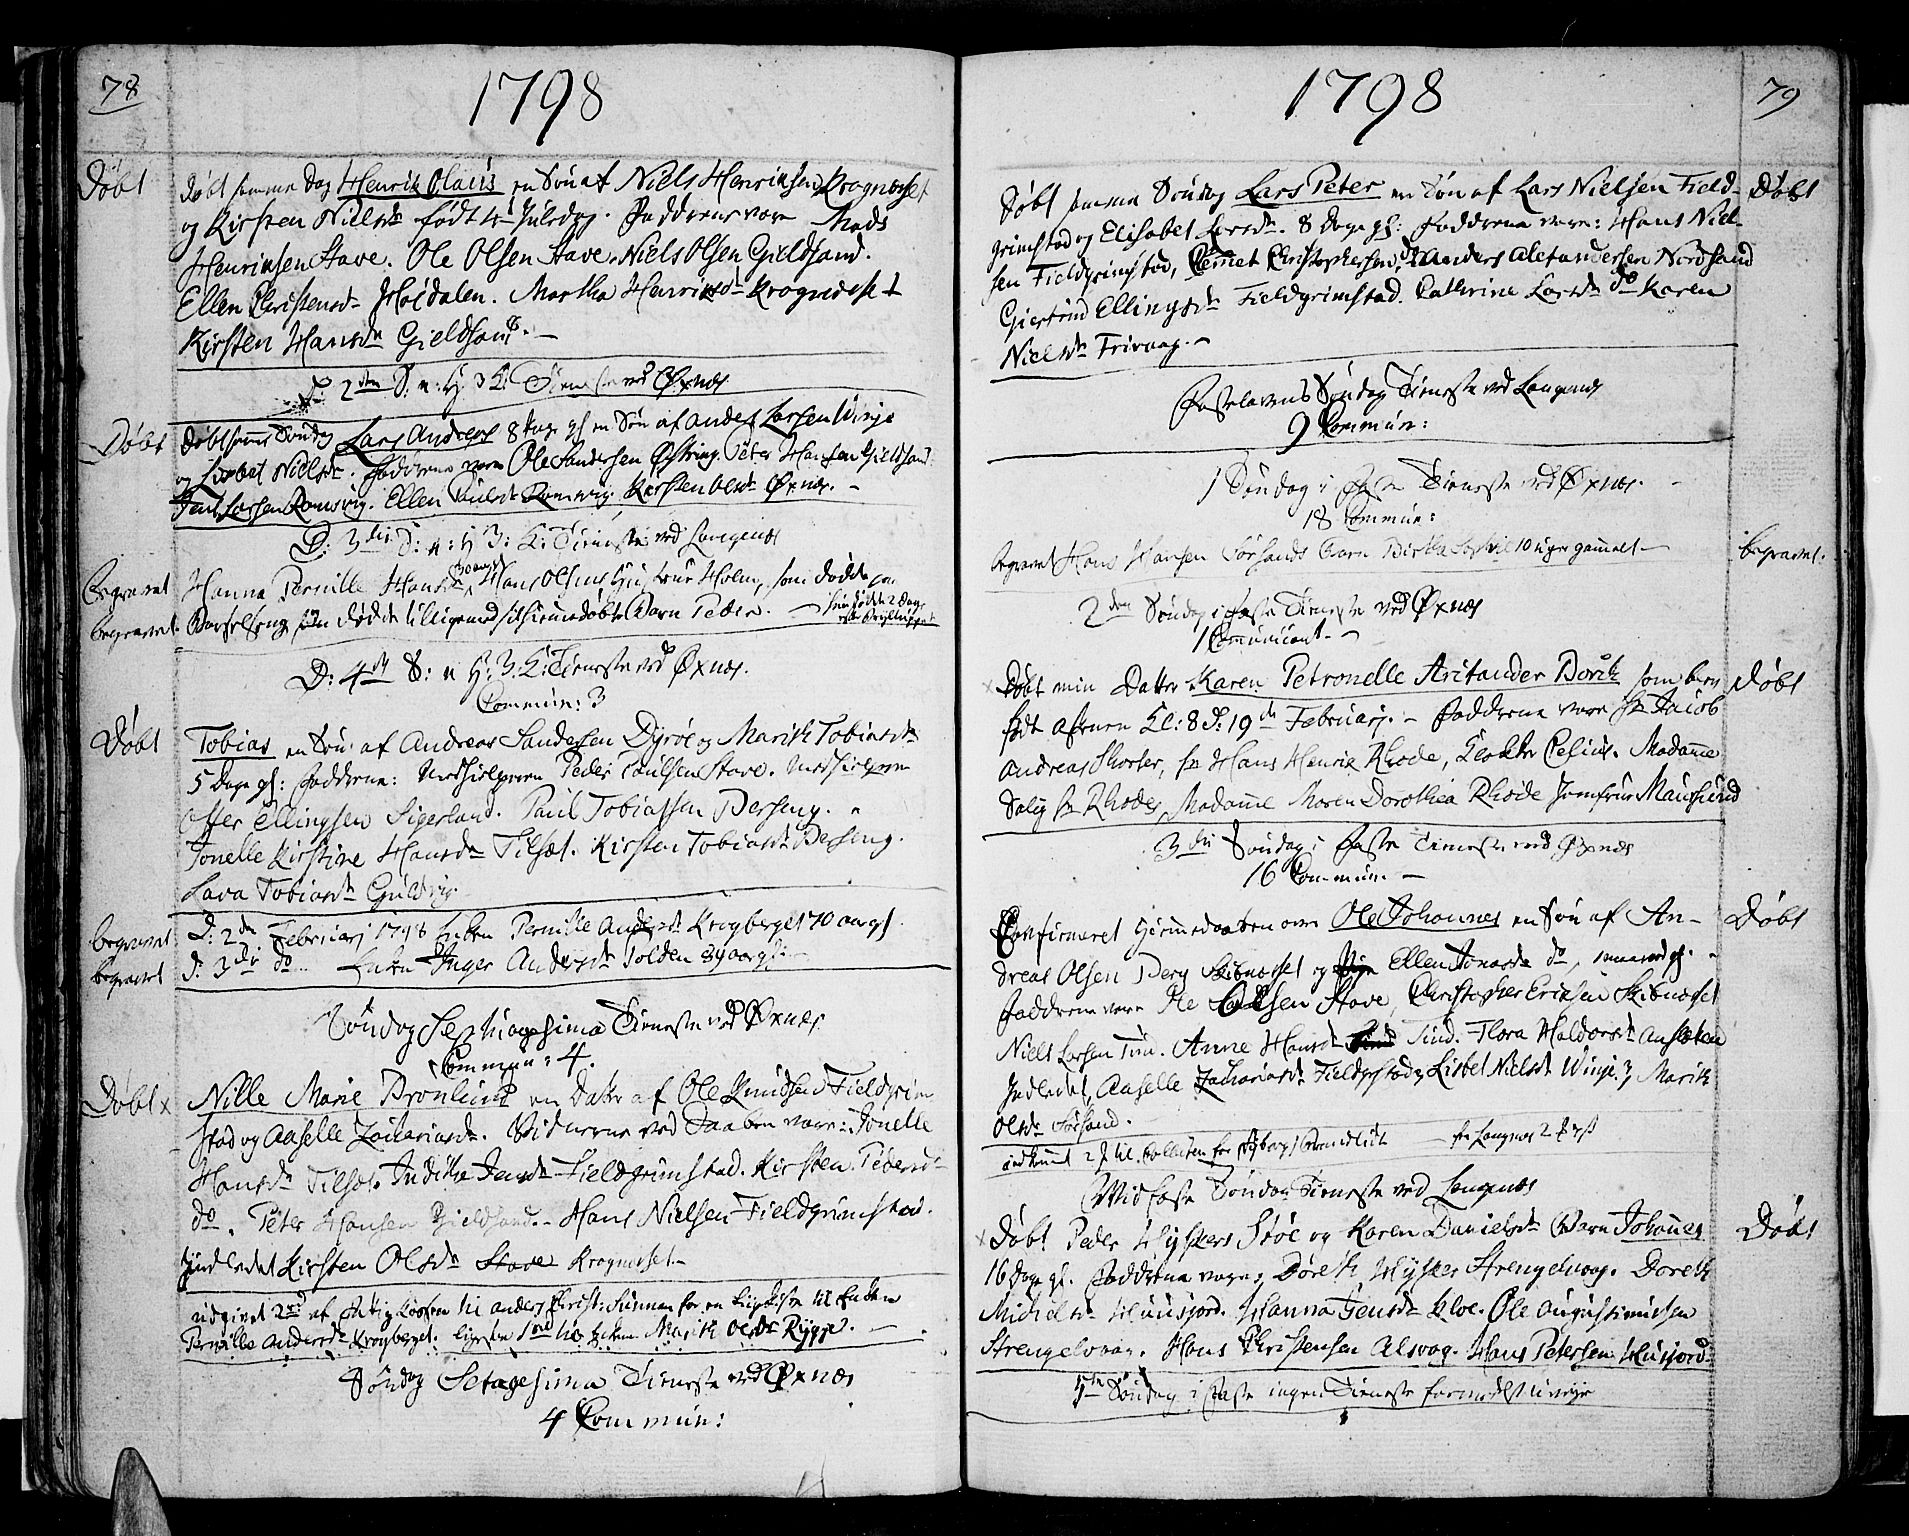 78
1798
Døbt
Døbt samme Dag Henrik Olaus en Søn af Niels Henriksen Krognæsset
og Kirsten Nillsdr født 4 Juledag. Fadderne vare Mads
Henriksen Stave. Ole Olsen Stave. Niels Olsen Gieldsand.
Ellen Christensdr Høidalen. Martha Henriksdr Krognesset
Kirsten Hansdr Gieldsand. —
D: 2den S: n: H 3 K: Tieneste ved Øxnæs
Døbt
Døbt samme Søndag Lars Andreas 8 Dage gl en Søn af Anders Larsen Winje
og Lisbet Nielsdr. Fadderne vare Ole Sandersen Østring. Peter Hansen Gieldsand
Jens Larsen Romsvig. Ellen Paulsdr Romsvig. Kirsten Olsdr Øxnæs. —
D: 3die S: n: H 3: K: Tieneste ved Langenæs
Begravet
Hanna Pernille Hansdr 30 aar, Hans Olsens Hustrue Holm, som døde paa
begravet
Barselseng døde tilligemed sit hiemmedøbte Barn Peder. —
D: 4de S: n H: 3: K: Tieneste ved Øxnæs.
Commun: 3
Døbt
Tobias en Søn af Andreas Sandersen Dyrøe og Marith Tobiasdr
5 Dage gl: Fadderne: Medhielperen Peder Paulsen Stave. Medhielperen
Offer Ellingsen Sigerland. Paul Tobiassen Barseng.
Jonelle Kirstine Hansdr Tilsæt. Kirsten Tobiasdr Barseng.
Lava Tobiasdr Guldvig.
begravet
D: 2den Februarj 1798 Enken Pernille Andersdr Krogberget 70 aar gl.
begravet
D: 3die do .. Enken Inger Andersdr Tolden 89 aar gl: —
Søndag Septuagesima Tieneste ved Øxnæs
Commun: 4.
Døbt x
Nille Marie Bronlund en Datter af Ole Knudsen Fieldgrim
stad og Aaselle Zachariasdr. Vidnerne ved Daaben vare: Jonelle
Hansdr Tilsæt. Inditha Jensdr Fieldgrimstad. Kirsten Pedersdr
do. Peter Hansen Gieldsand. Hans Nielsen Fieldgrimstad.
Indledet Kirsten Olsdr Stave Krognesset —
udgivet 2rd af Fattig Kassen til Anders Christ: Sunnan for en Liigkiste til Enken
Pernille Andersdr Krogberget. ligesaa 1rd til Enken Marith Olsdr Rygge. —
Søndag Sexagesima Tieneste ved Øxnæs
4 Commun:
1798
79
Døbt samme Søndag Lars Peter en Søn af Lars Nielsen Field-
Døbt
grimstad og Elisabet Larsdr. 8 Dage gl: Fadderne vare: Hans Niel-
sen Fieldgrimstad, Bernet Christophersen do, Anders Alexandersen Nordsand
Giertrud Ellingsdr Fieldgrimstad. Cathrine Larsdr do Karen
Nielsdr Frivaag. —
Fastelavens Søndag Tieneste ved Langenæs
9 Commun:
1 Søndag i Faste Tieneste ved Øxnæs. —
18 Commun:
begravet Hans Hansen Sørsands Barn Birthe 10 uger gammelt —
begravet.
2den Søndag i Faste Tieneste ved Øxnæs
1 Comunicant. —
x Døbt min Datter Karen Petronelle Aritander Borch som berr
Døbt
født aftenen Kl: 8 d: 19de Februarj. — Fadderne vare Hr Jacob
Andreas Shorter, Hr Hans Henrik Rhode, Klokker Celius. Madame
Salig Hr Rhodes, Madame Maren Dorothea Rhode Jomfrue Maursund
3die Søndag i Faste Tieneste ved Øxnæs
16 Commun. —
Confirmeret Hiemmedaaben over Ole Johannes en Søn af An-
Døbt
dreas Olsen Berg Skibnæsset og Ellen Jonasdr do, 1 maaned gl.
Fadderne vare Ole Olsen Stave, Christopher Eriksen Skibnæsset
Niels Larsen Tind. Anne Hansdr Tind. Flora Haldorsdr Ansteten
Indledet, Aaselle Zachariasdr Fieldgrstad, Lisbet Nielsdr Winje, Marith
Olsdr Sørsand.
indkommet 2 til Collecten for Nyborg — fra Langnæs 2
Midfaste Søndag Tieneste ved Langenæs
x Døbt Peder Hyskers Støe og Karen Danielsdr Barn Johannes
Døbt
16 Dage gl. Fadderne vare: Doreth Hysker Strengelvaag. Doreth
Michelsdr Huusjord. Hanna Jensdr Kloe. Ole Augustinussen
Strengelvaag. Hans Christensen Alsvag. Hans Petersen Husjord
5te Søndag i Faste ingen Tieneste formedelst Uveir